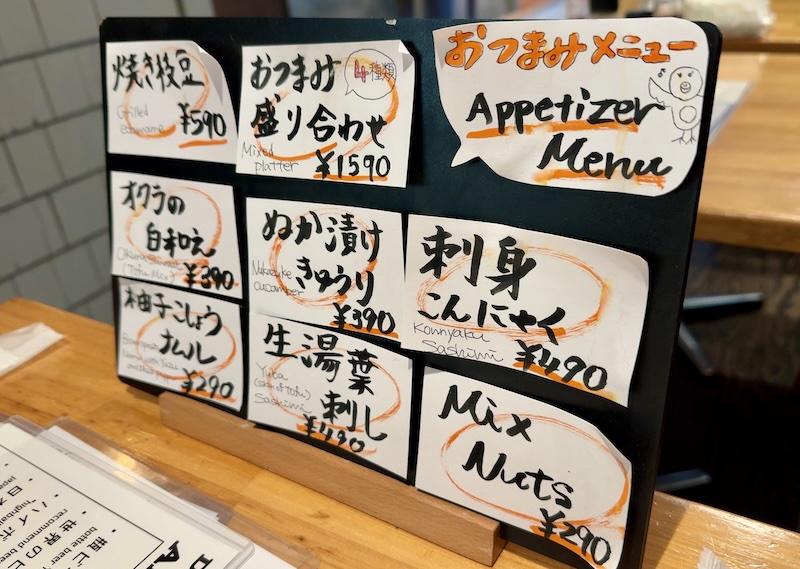 おつまみメニュー
Appetizer
Menu
焼き枝豆
Grilled
edamame
¥590
おつまみ
4種類
盛り合わせ
Mixed
platter
¥1590
オクラの
白和え
(Tofu Mix)
¥390
ぬか漬け
きゅうり
Nukazuke
cucumber
¥390
刺身
こんにゃく
Konnyaku
Sashimi
¥490
柚子こしょう
ナムル
¥290
生湯葉
刺し
Yuba
Sashimi
¥490
Mix
Nuts
¥290